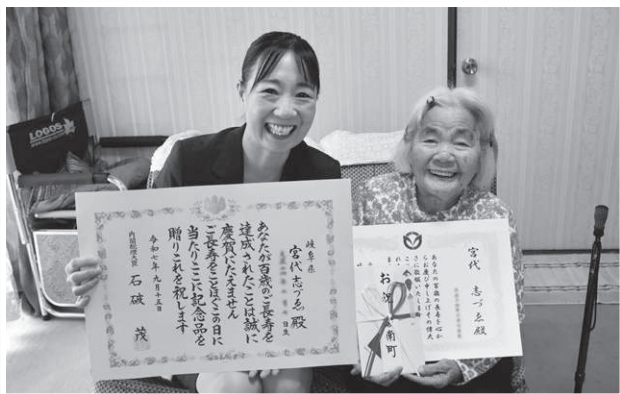 LOGOS
岐阜県
宮代 志づゑ殿
あなたが百歳のご長寿を
達成されたことは誠に
慶賀にたえません
ご長寿をことほぐこの日に
当たりここに記念品を
贈りこれを祝します
令和七年九月十五日
内閣総理大臣
石破 茂
宮代 志づゑ殿
あなたの百歳の長寿を心か
らお慶び申し上げその偉大
お祝
南町